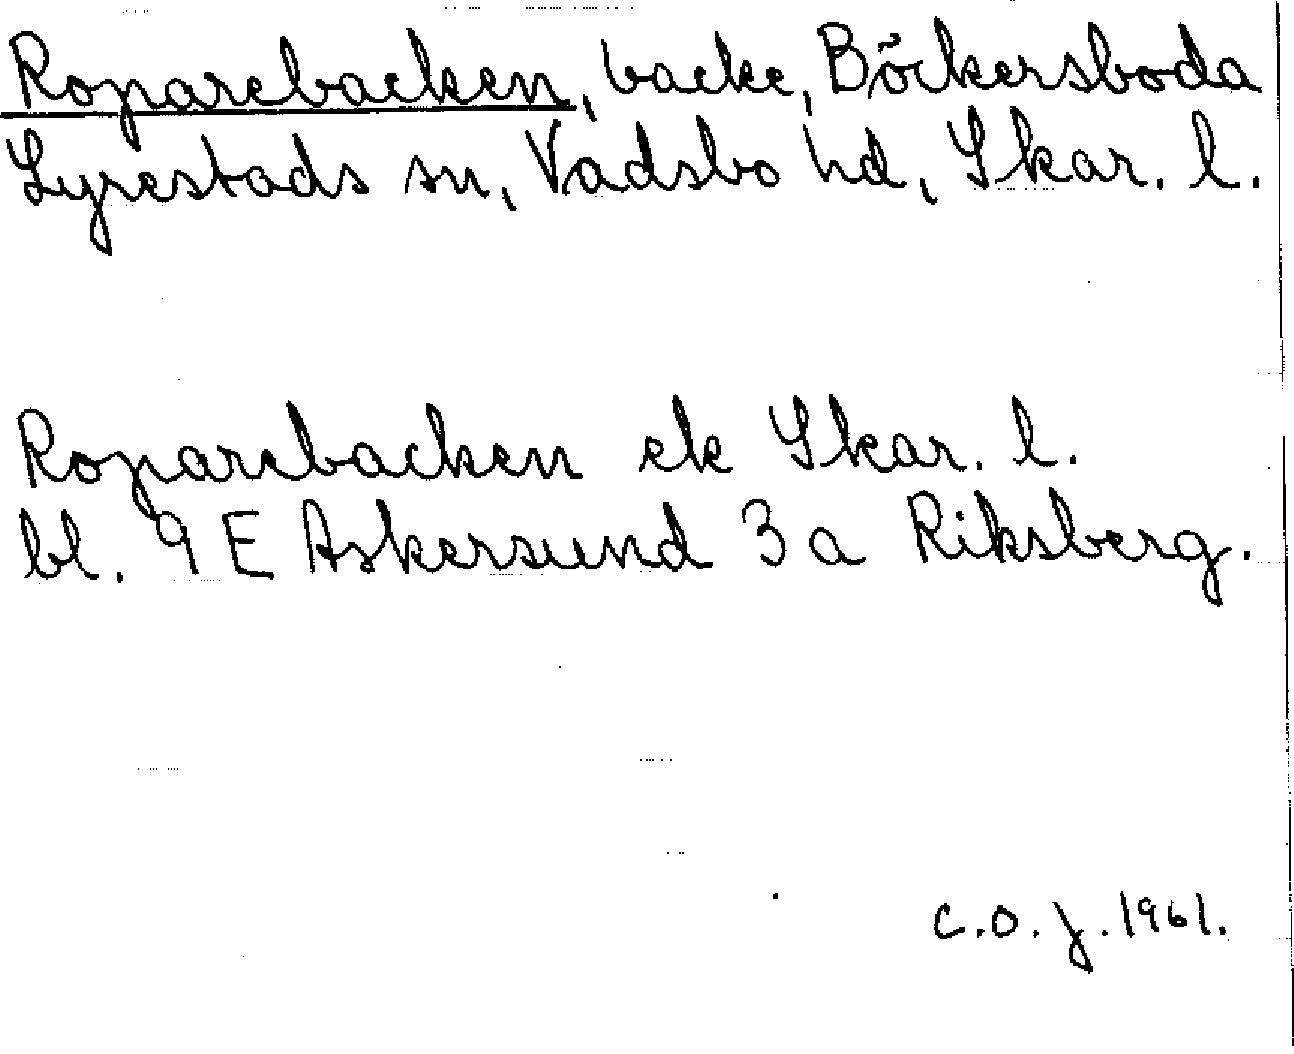 Roparebacken, backe, Böckersboda
Lyrestads sn, Vadsbo hd, Skar. l.
Roparebacken ek Skar. l.
bl. 9 E Askersund 3 a Riksberg.
C.O.J. 1961.